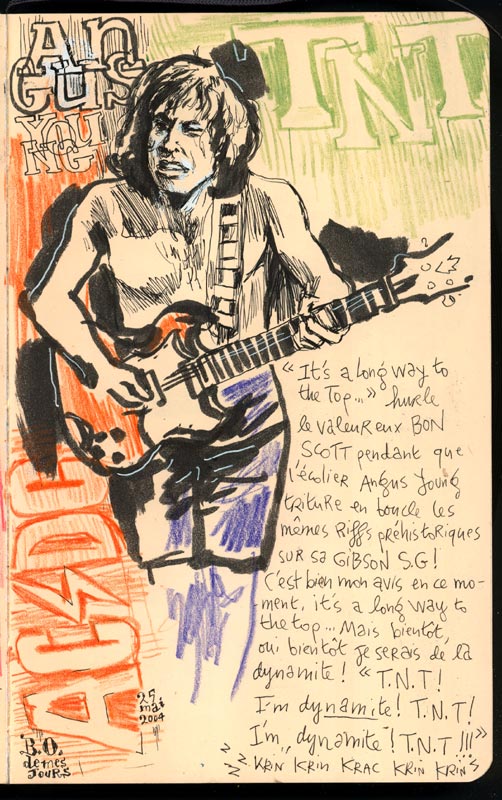 AN
GUS
YOU
NG
TNT
AC⚡DC
« It's a long way to
the Top... » hurle
le valeureux BON
SCOTT pendant que
l'écolier Angus Young
triture en boucle les
mêmes Riffs préhistoriques
sur sa GIBSON S.G!
C'est bien mon avis en ce mo-
ment, it's a long way to
the top... Mais bientôt,
oui bientôt je serais de la
dynamite! « T.N.T!
I'm dynamite! T.N.T!
I'm dynamite! T.N.T!!! »
KRIN KRIN KRAC KRIN KRIN
25
mai
2004
B.O.
de mes
JOURS